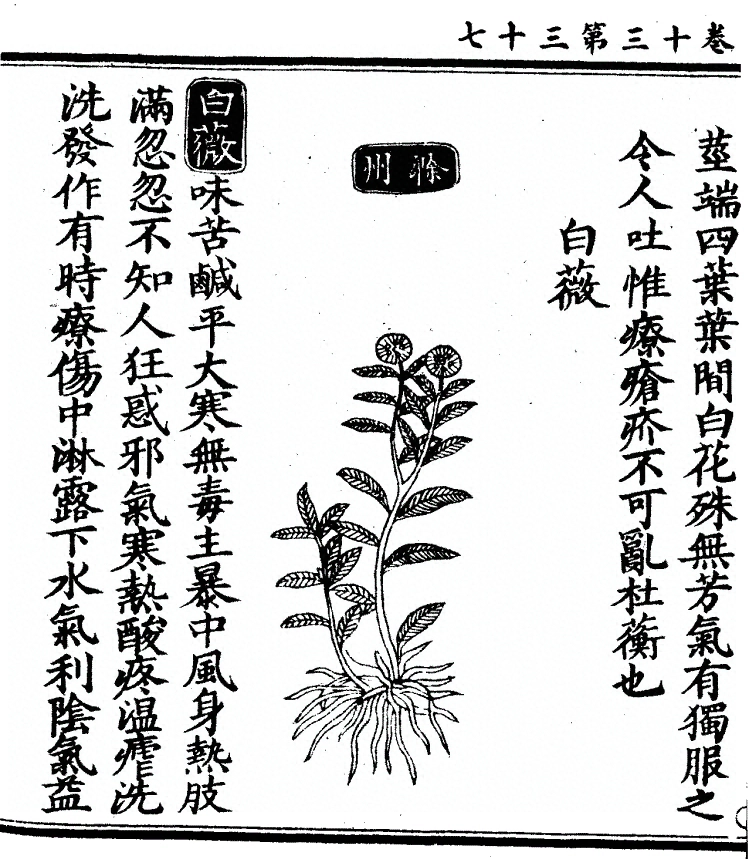 卷十三第三十七
莖端四葉葉間白花殊無芳氣有獨服之
令人吐惟療瘡疥不可亂杜蘅也
白薇
滁州
白薇味苦鹹平大寒無毒主暴中風身熱肢
滿忽忽不知人狂惑邪氣寒熱酸疼温瘧洗
洗發作有時療傷中淋露下水氣利陰氣益